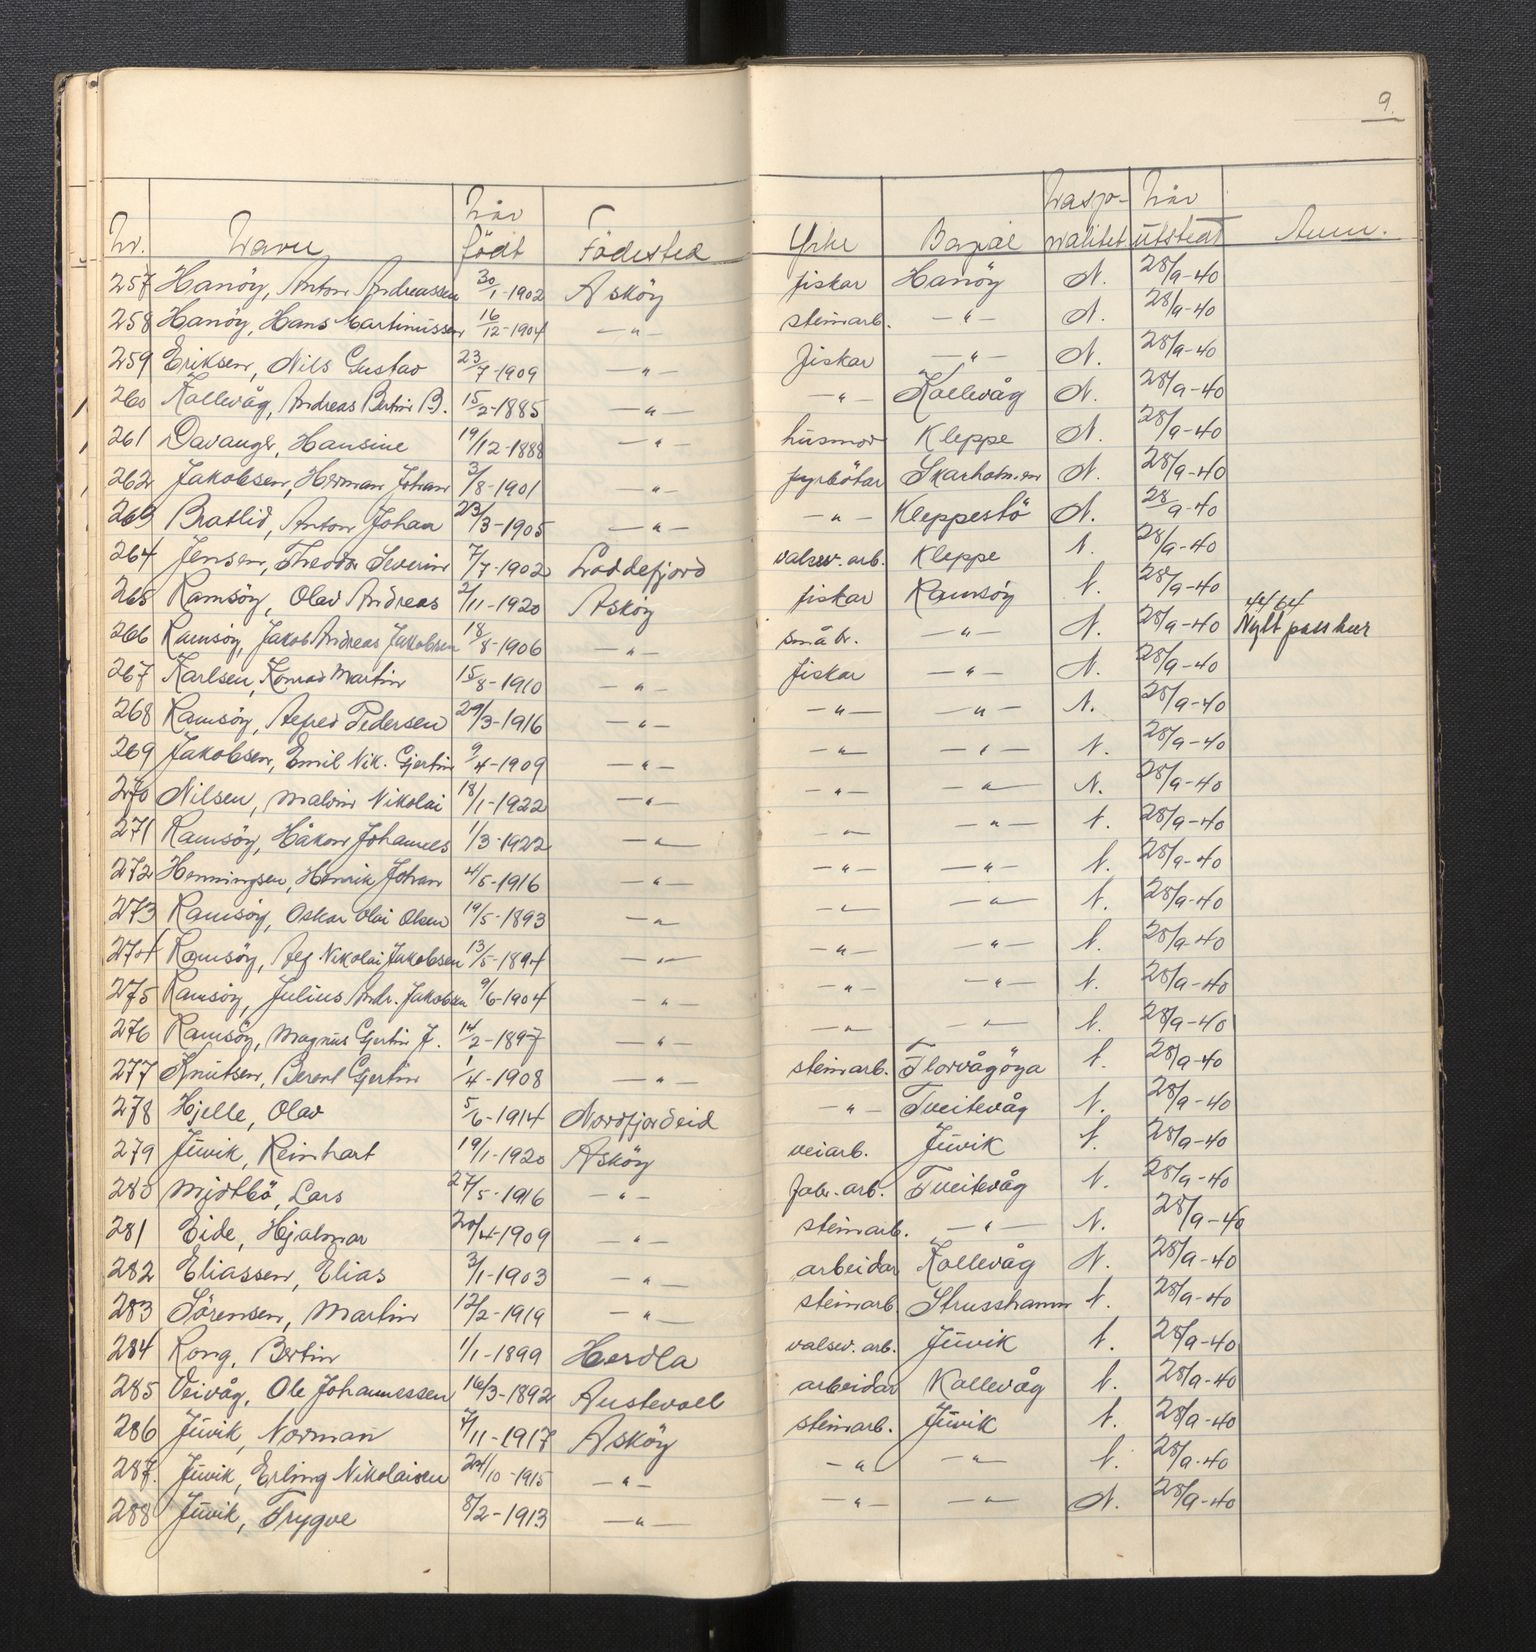 9.
Nr. Navn Når födt Födested Yrke Bopæl Nasjo-nalitet Når utstedt Anm.
257 Hanöy, Anton Andreassen 30/1-1902 Asköy fiskar Hanöy N. 28/9-40
258 Hanöy, Hans Martinussen 16/12-1904 —"— steinarb. —"— N. 28/9-40
259 Eriksen, Nils Gustav 23/7-1909 —"— fiskar —"— N. 28/9-40
260 Kollevåg, Andreas Bertin B. 15/2-1885 —"— —"— Kollevåg N. 28/9-40
261 Davanger, Hansine 19/12-1888 —"— husmor Kleppe N. 28/9-40
262 Jakobsen, Herman Johan 3/8-1901 —"— fyrbötar Skarholmen N. 28/9-40
263 Bratlid, Anton Johan 23/3-1905 —"— —"— Kleppestö N. 28/9-40
264 Jensen, Theodor Severin 7/7-1902 Loddefjord valsev. arb. Kleppe N. 28/9-40
265 Ramsöy, Olav Andreas 2/11-1920 Asköy fiskar Ramsöy N. 28/9-40
266 Ramsöy, Jakob Andreas Jakobsen 18/8-1906 —"— småbr. —"— N. 28/9-40 4464 Nytt pass
267 Karlsen, Konrad Martin 15/8-1910 —"— fiskar —"— N. 28/9-40
268 Ramsöy, Alfred Pedersen 29/3-1916 —"— —"— —"— N. 28/9-40
269 Jakobsen, Emil Nik. Gjertin 9/4-1909 —"— —"— —"— N. 28/9-40
270 Nilsen, Malvin Nikolai 18/1-1922 —"— —"— —"— N. 28/9-40
271 Ramsöy, Håkon Johannes 1/3-1922 —"— —"— —"— N. 28/9-40
272 Henningsen, Henrik Johan 4/5-1916 —"— —"— —"— N. 28/9-40
273 Ramsöy, Oskar Olai Olsen 19/5-1893 —"— —"— —"— N. 28/9-40
274 Ramsöy, Alf Nikolai Jakobsen 13/5-1894 —"— —"— —"— N. 28/9-40
275 Ramsöy, Julius Andr. Jakobsen 9/6-1904 —"— —"— —"— N. 28/9-40
276 Ramsöy, Magnus Gjertin J. 14/2-1897 —"— —"— —"— N. 28/9-40
277 Knutsen, Berent Gjertin 1/4-1908 —"— steinarb. Florvågöya N. 28/9-40
278 Hjelle, Olav 5/6-1914 Nordfjordeid —"— Tveitevåg N. 28/9-40
279 Juvik, Reinhart 19/1-1920 Asköy veiarb. Juvik N. 28/9-40
280 Midtbö, Lars 27/5-1916 —"— fabr. arb. Tveitevåg N. 28/9-40
281 Eide, Hjalmar 20/4-1909 —"— steinarb. —"— N. 28/9-40
282 Eliassen, Elias 3/1-1903 —"— arbeidar Kollevåg N. 28/9-40
283 Sörensen, Martin 12/2-1919 —"— steinarb. Strusshamn N. 28/9-40
284 Rong, Bertin 1/1-1899 Herdla valsev. arb. Juvik N. 28/9-40
285 Veivåg, Ole Johannessen 16/3-1892 Austevoll arbeidar Kollevåg N. 28/9-40
286 Juvik, Norman 7/11-1917 Asköy steinarb. Juvik N. 28/9-40
287. Juvik, Erling Nikolaisen 24/10-1915 —"— —"— —"— N. 28/9-40
288 Juvik, Trygve 8/2-1913 —"— —"— —"— N. 28/9-40